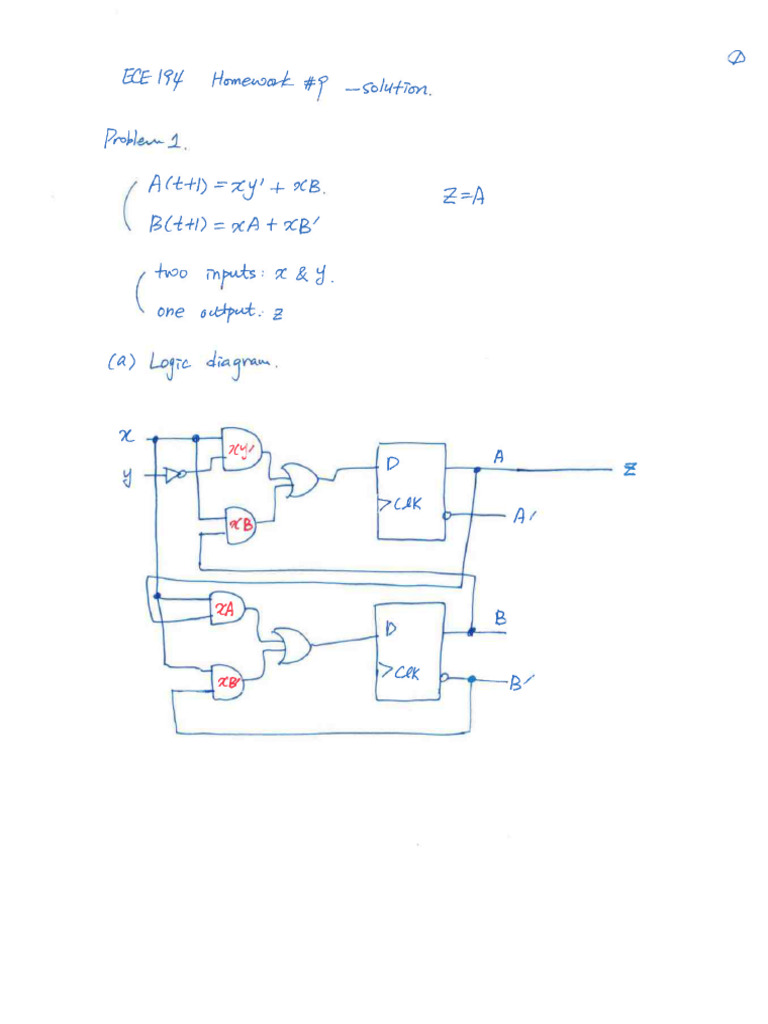 ①
ECE 194 Homework #9 —solution.
Problem 1.
A(t+1) = xy' + xB. Z=A
B(t+1) = xA + xB'
two inputs: x & y.
one output: z
(a) Logic diagram.
x
xy'
y
D
A
Z
>Clk
xB
A'
xA
D
B
>Clk
xB'
B'